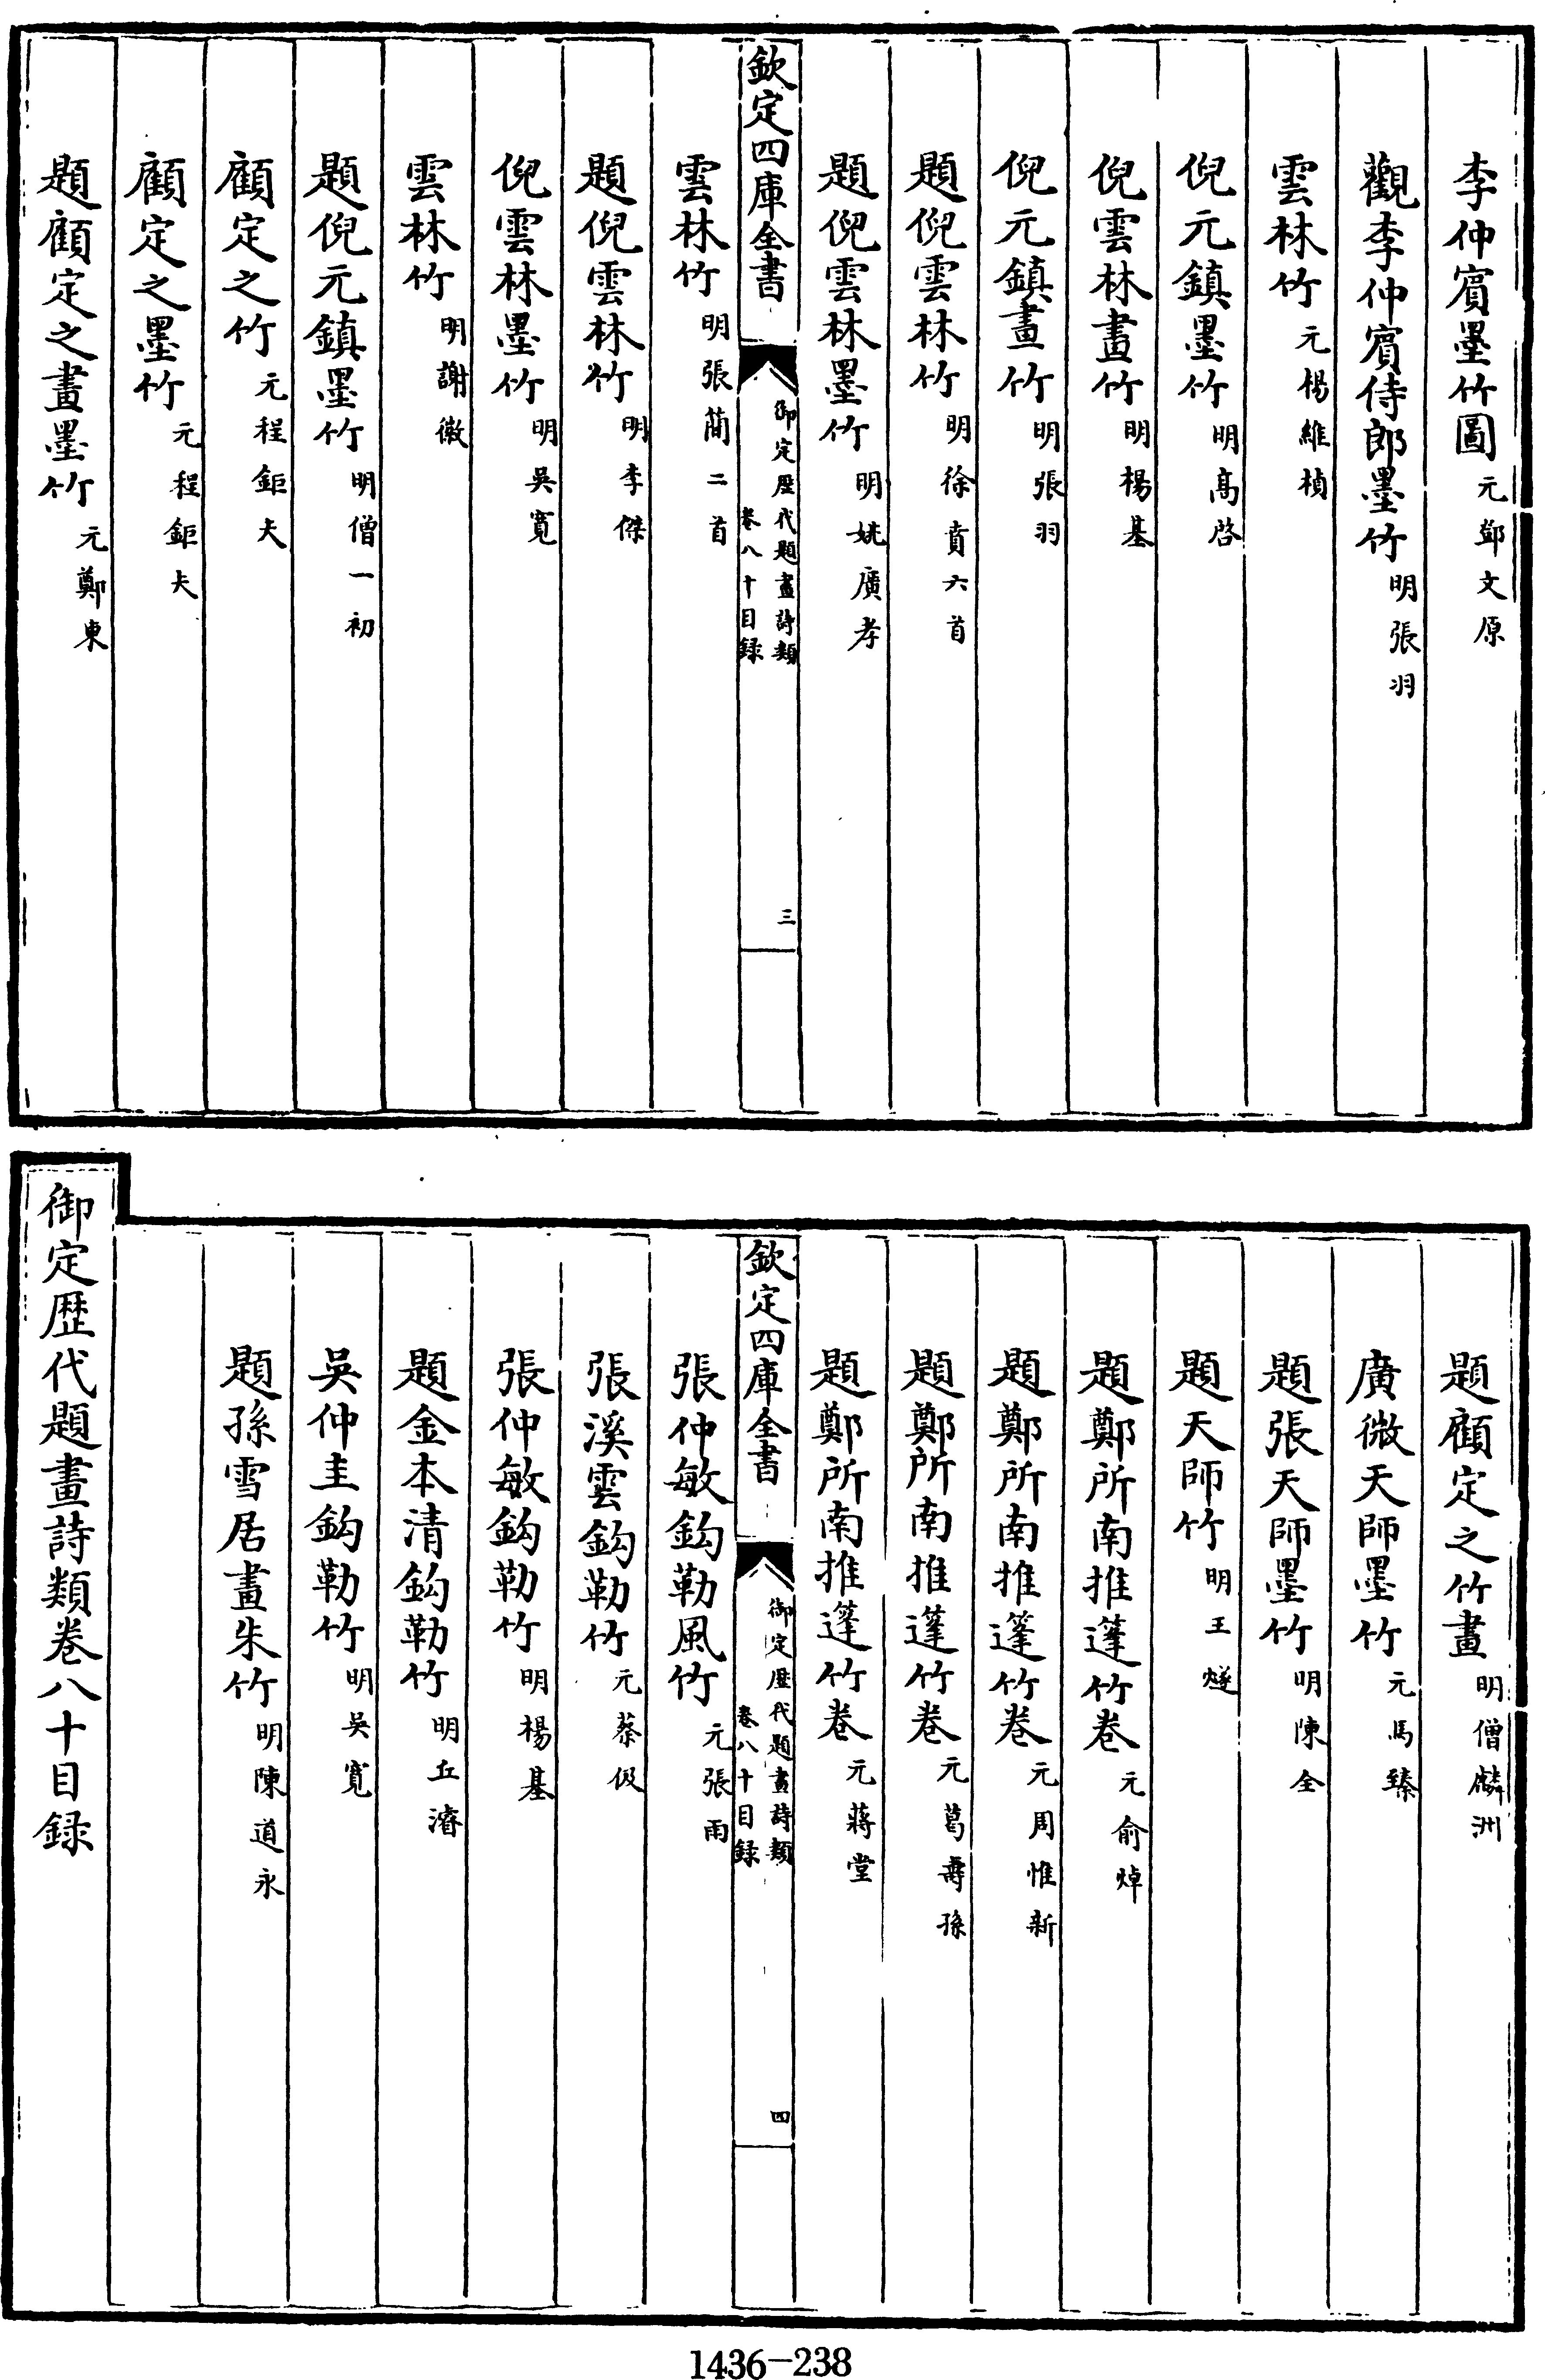 李仲賔墨竹圖元鄧文原
觀李仲賔侍郎墨竹明張羽
雲林竹元楊維楨
倪元鎮墨竹明髙啓
倪雲林畫竹明楊基
倪元鎮畫竹明張羽
題倪雲林竹明徐賁六首
題倪雲林墨竹明姚廣孝
欽定四庫全書
御定歷代題畫詩類
卷八十目録
三
雲林竹明張簡二首
題倪雲林竹明李傑
倪雲林墨竹明吳寛
雲林竹明謝徽
題倪元鎮墨竹明僧一初
顧定之竹元程鉅夫
顧定之墨竹元程鉅夫
題顧定之畫墨竹元鄭東
題顧定之竹畫明僧麟洲
廣微天師墨竹元馬臻
題張天師墨竹明陳全
題天師竹明王燧
題鄭所南推蓬竹卷元俞焯
題鄭所南推蓬竹卷元周惟新
題鄭所南推蓬竹卷元葛壽孫
題鄭所南推蓬竹卷元蔣堂
欽定四庫全書
御定歷代題畫詩類
卷八十目録
四
張仲敏鈎勒風竹元張雨
張溪雲鈎勒竹元蔡伋
張仲敏鈎勒竹明楊基
題金本清鈎勒竹明丘濬
吳仲圭鈎勒竹明吳寛
題孫雪居畫朱竹明陳道永
御定歴代題畫詩類卷八十目録
1436-238